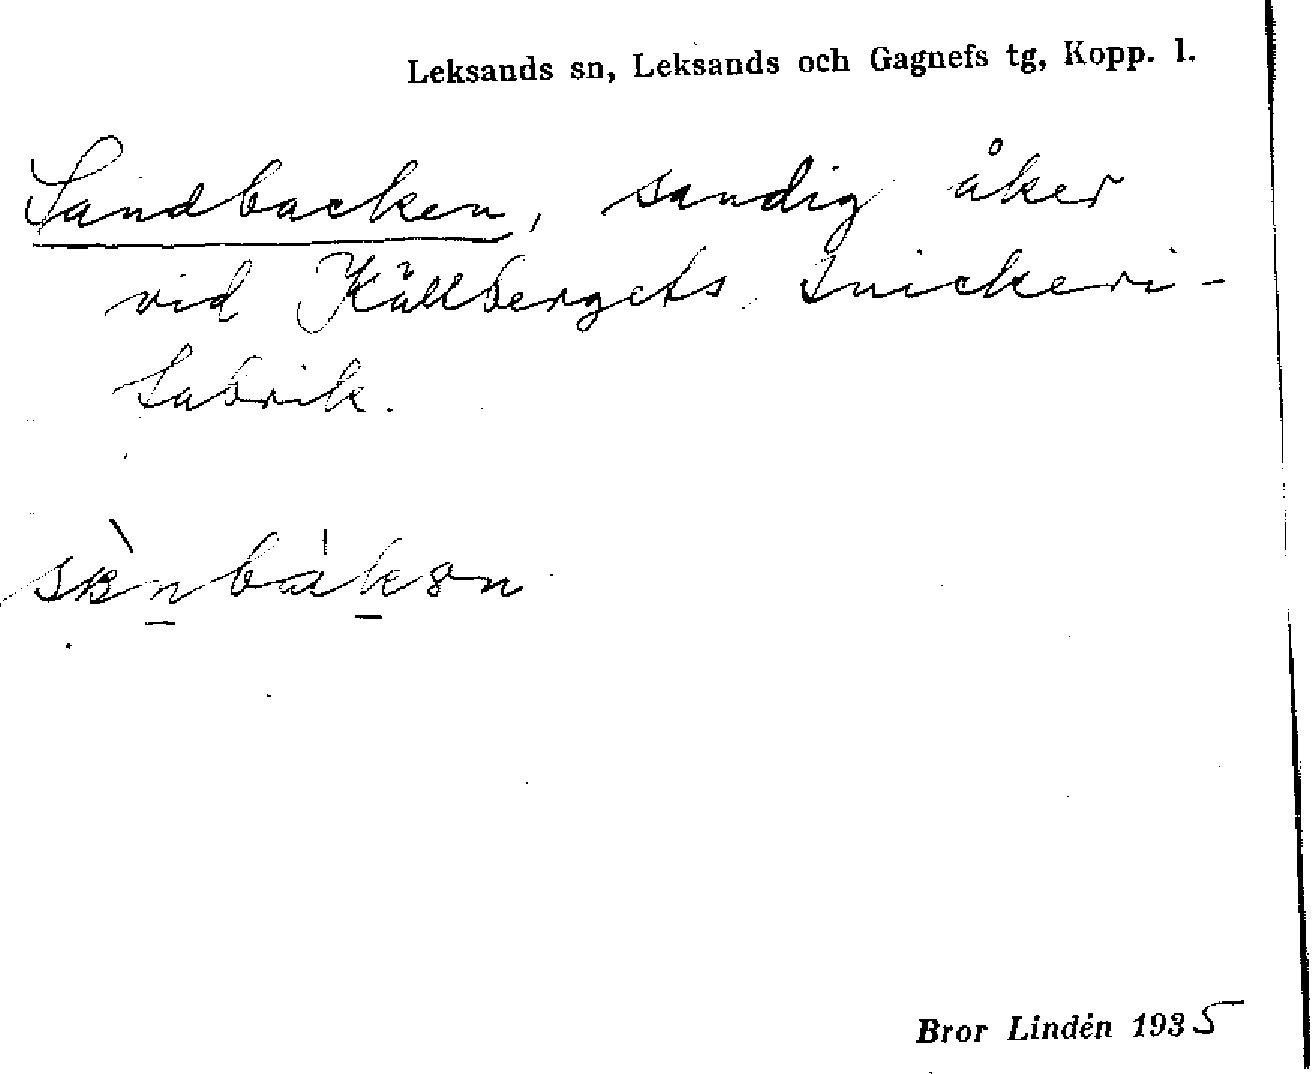 Leksands sn, Leksands och Gagnefs tg, Kopp. l.
Sandbacken, sandig åker
vid Källbergets snickeri-
fabrik.
Bror Lindén 1935